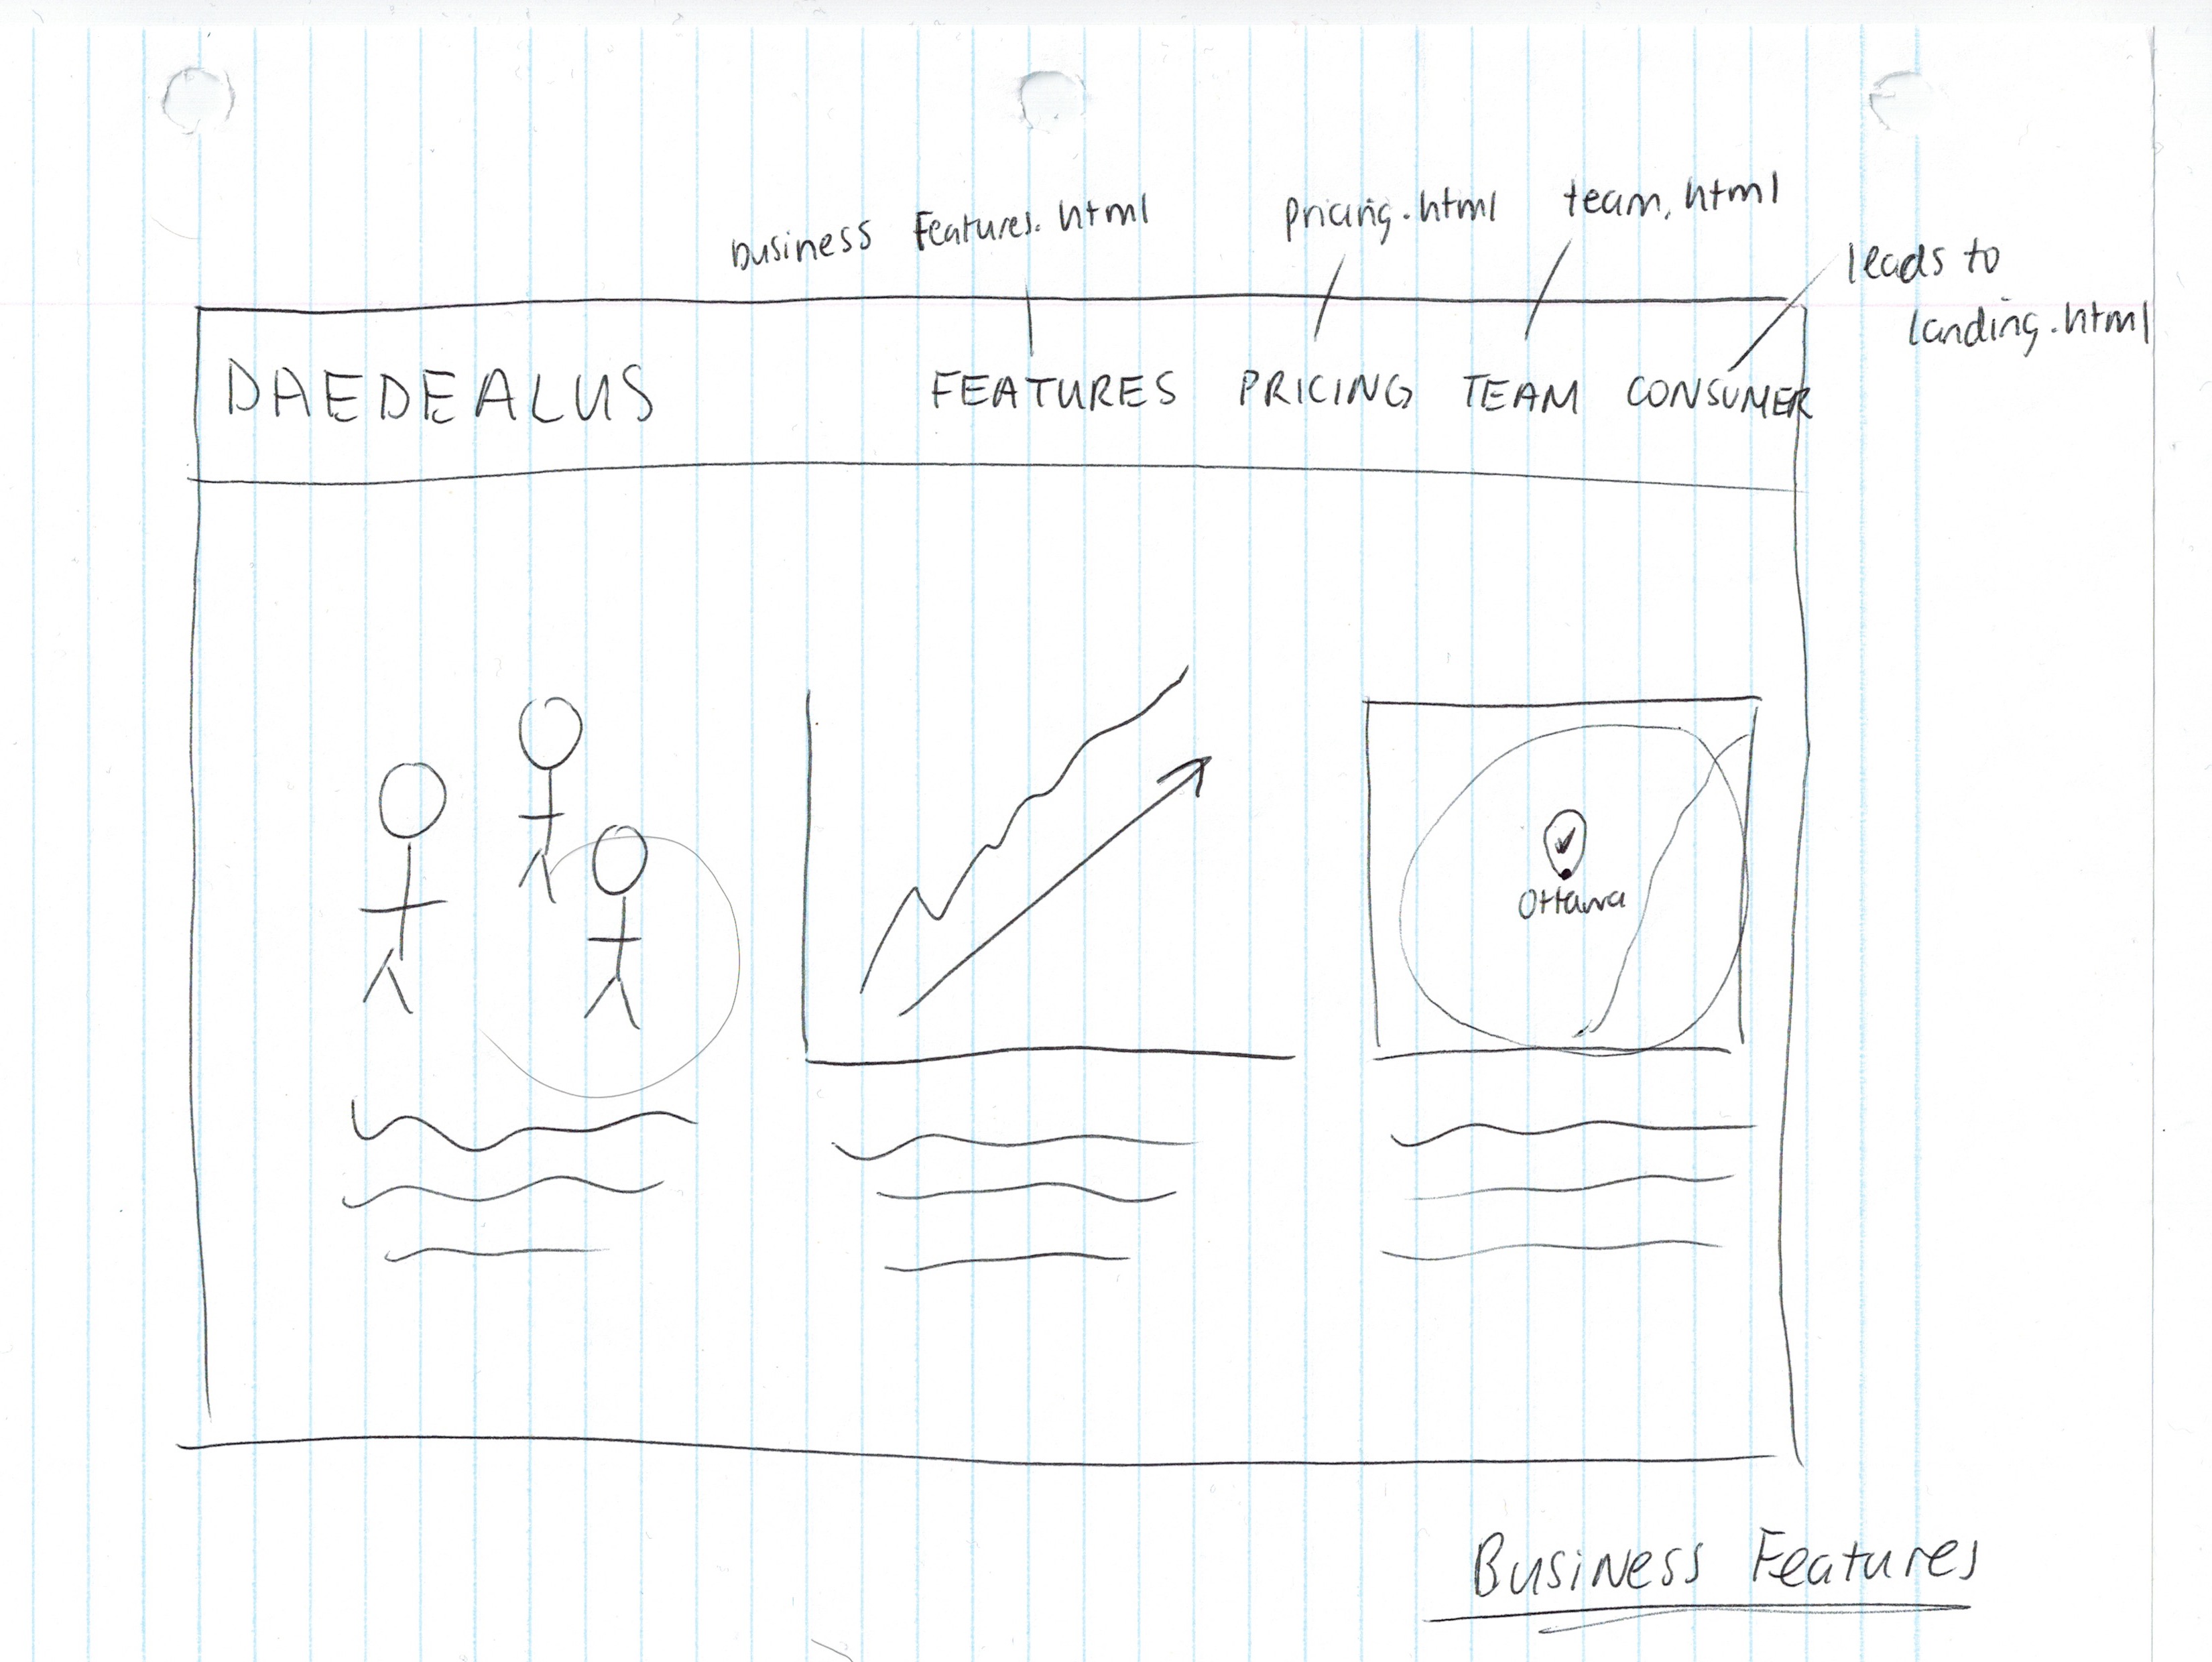 Business Features.html
pricing.html
team.html
leads to
landing.html
DAEDEALUS
FEATURES PRICING TEAM CONSUMER
Ottawa
Business Features